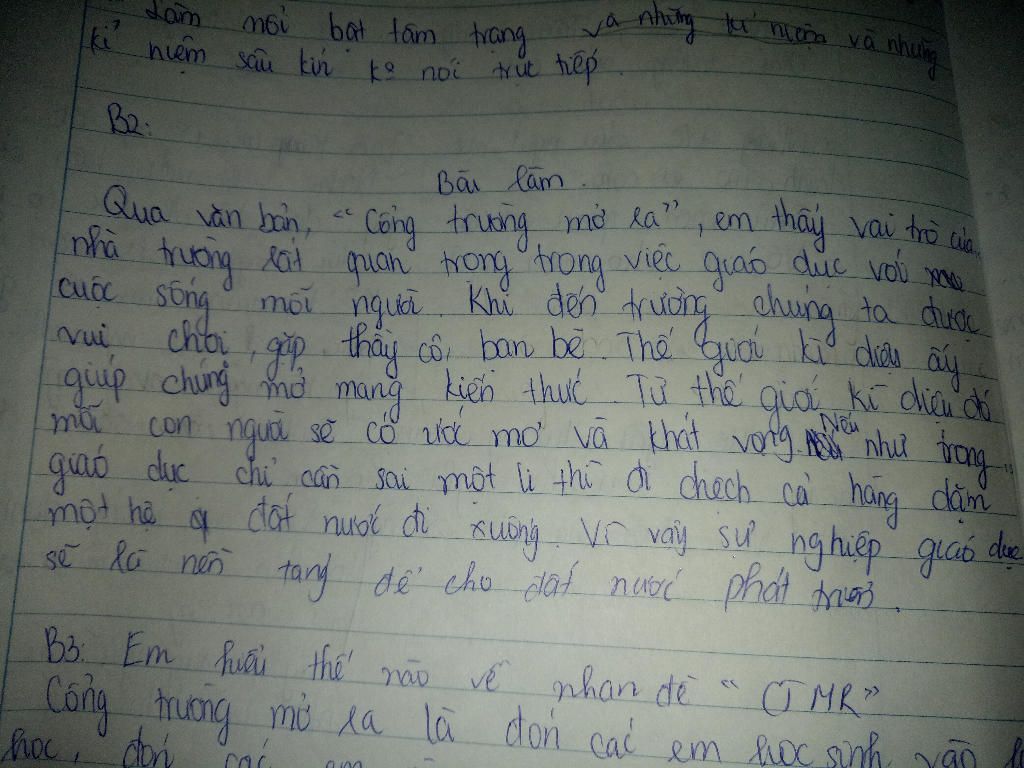 làm nổi bạt tâm trạng và những kỉ niệm và những
kỉ niệm sâu kín ko nói trực tiếp.
B2:
Bài làm.
Qua văn bản, "Cổng trường mở ra", em thấy vai trò của
nhà trường rất quan trọng trong việc giáo dục với
cuộc sống mỗi người. Khi đến trường chúng ta được
vui chơi, gặp thầy cô, bạn bè. Thế giới kì diệu ấy
giúp chúng mở mang kiến thức. Từ thế giới kì diệu đó
mỗi con người sẽ có ước mơ và khát vọng. Nếu như trong
giáo dục chỉ cần sai một li thì đi chệch cả hàng dặm
một hệ q đất nước đi xuống. Vì vậy sự nghiệp giáo dục
sẽ là nền tảng để cho đất nước phát triển.
B3: Em hiểu thế nào về nhan đề "CTMR"
Cổng trường mở ra là đón các em học sinh vào
học, đón các em